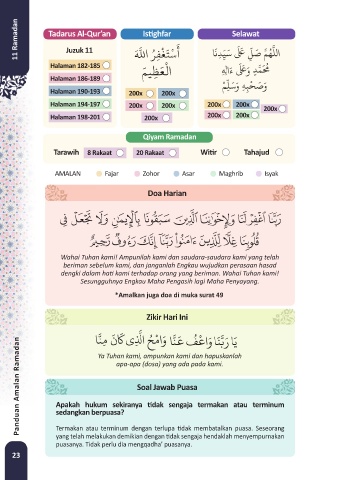 11 Ramadan
Tadarus Al-Qur'an
Istighfar
Selawat
Juzuk 11
Halaman 182-185
Halaman 186-189
Halaman 190-193
Halaman 194-197
Halaman 198-201
أَسْتَغْفِرُ اللَّهَ
الْعَظِيمَ
200x 200x
200x 200x
200x
اللَّهُمَّ صَلِّ عَلَىٰ سَيِّدِنَا
مُحَمَّدٍ وَعَلَىٰ ءَالِهِ
وَصَحْبِهِ وَسَلِّمْ
200x 200x
200x 200x
200x
Qiyam Ramadan
Tarawih 8 Rakaat 20 Rakaat Witir Tahajud
AMALAN Fajar Zohor Asar Maghrib Isyak
Doa Harian
رَبَّنَا اغْفِرْ لَنَا وَلِإِخْوَانِنَا الَّذِينَ سَبَقُونَا بِالْإِيمَٰنِ وَلَا تَجْعَلْ فِي
قُلُوبِنَا غِلًّا لِّلَّذِينَ ءَامَنُوا رَبَّنَا إِنَّكَ رَءُوفٌ رَّحِيمٌ
Wahai Tuhan kami! Ampunilah kami dan saudara-saudara kami yang telah
beriman sebelum kami, dan janganlah Engkau wujudkan perasaan hasad
dengki dalam hati kami terhadap orang yang beriman. Wahai Tuhan kami!
Sesungguhnya Engkau Maha Pengasih lagi Maha Penyayang.
*Amalkan juga doa di muka surat 49
Zikir Hari Ini
يَا رَبَّنَا وَاعْفُ عَنَّا وَامْحُ الَّذِي كَانَ مِنَّا
Ya Tuhan kami, ampunkan kami dan hapuskanlah
apa-apa (dosa) yang ada pada kami.
Soal Jawab Puasa
Apakah hukum sekiranya tidak sengaja termakan atau terminum
sedangkan berpuasa?
Termakan atau terminum dengan terlupa tidak membatalkan puasa. Seseorang
yang telah melakukan demikian dengan tidak sengaja hendaklah menyempurnakan
puasanya. Tidak perlu dia mengqadha' puasanya.
Panduan Amalan Ramadan
23